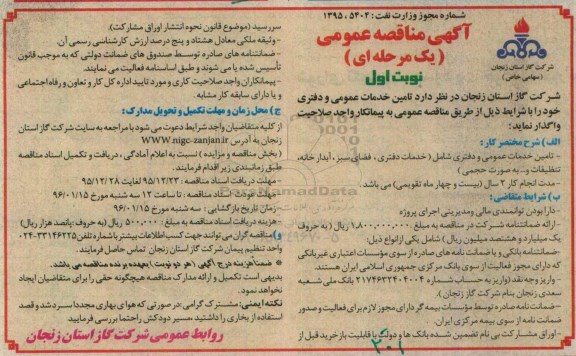 شماره مجوز وزارت نفت : ۵۴۰۴ ، ۱۳۹۵
آگهی مناقصه عمومی
(یک مرحله ای)
نوبت اول
شرکت گاز استان زنجان
(سهامی خاص)
شرکت گاز استان زنجان در نظر دارد تامین خدمات عمومی و دفتری
خود را با شرایط ذیل از طریق مناقصه عمومی به پیمانکار واجد صلاحیت
واگذار نماید:
الف) شرح مختصر کار:
- تامین خدمات عمومی و دفتری شامل (خدمات دفتری، فضای سبز، آبدار خانه،
تنظیفات و... به صورت حجمی)
- مدت انجام کار ۲ سال (بیست و چهار ماه تقویمی) می باشد.
ب) شرایط متقاضی:
- دارا بودن توانمندی مالی ومدیریتی اجرای پروژه
- ارائه ضمانتنامه شرکت در مناقصه به مبلغ ۱,۸۰۰,۰۰۰,۰۰۰ ریال (به حروف
یک میلیارد و هشتصد میلیون ریال) شامل یکی از انواع ذیل:
- ضمانتنامه بانکی و یا ضمانت نامه های صادره از سوی مؤسسات اعتباری غیربانکی
که دارای مجوز فعالیت از سوی بانک مرکزی جمهوری اسلامی ایران هستند.
- واریز وجه نقد (واریز به حساب شماره ۲۱۷۴۶۳۲۴۰۴۰۰۴ بانک ملی شعبه
سعدی زنجان بنام شرکت گاز زنجان ).
- ضمانت نامه صادره توسط مؤسسات بیمه گر دارای مجوز لازم برای فعالیت و صدور
ضمانت نامه از سوی بیمه مرکزی ایران.
- اوراق مشارکت بی نام تضمین شده بانک ها و دولت با قابلیت باز خرید قبل از
سررسید (موضوع قانون نحوه انتشار اوراق مشارکت).
- وثیقه ملکی معادل هشتاد و پنج درصد ارزش کارشناسی رسمی آن.
- ضمانتنامه های صادره توسط صندوق های ضمانت دولتی که به موجب قانون
تأسیس شده یا می شوند و طبق اساسنامه فعالیت می نمایند.
- پیمانکاران واجد صلاحیت کاری و مورد تایید اداره کل کار و تعاون و رفاه اجتماعی
و یا دارای سابقه کار مشابه.
ج) محل زمان و مهلت تکمیل و تحویل مدارک :
از کلیه متقاضیان واجد شرایط دعوت می شود با مراجعه به سایت شرکت گاز استان
زنجان به آدرس WWW.nigc-zanjan.ir
(بخش مناقصه و مزایده) نسبت به اعلام آمادگی ، دریافت و تکمیل اسناد مناقصه
طبق زمانبندی زیر اقدام فرمایند.
- مهلت دریافت اسناد مناقصه : ۹۵/۱۲/۲۳ لغایت ۹۵/۱۲/۲۸
- مهلت عودت اسناد مناقصه : تا ساعت ۱۲ سه شنبه مورخ ۹۶/۰۱/۱۵
- زمان تاریخ بازگشایی : سه شنبه مورخ ۹۶/۰۱/۱۵
- هزینه دریافت اسناد مناقصه به مبلغ ۵۰۰,۰۰۰ ریال (به حروف پانصد هزار ریال)
د) مناقصه گران می توانند جهت کسب اطلاعات بیشتر با شماره تلفن ۳۳۱۴۶۲۲۵-۰۲۴
واحد تنظیم پیمان شرکت گاز استان زنجان تماس حاصل فرمایند.
* ضمناً هزینه درج آگهی (هر دو نوبت) بعهده برنده مناقصه می باشد.
بدیهی است تکمیل و ارائه مدارک مناقصه هیچگونه حقی را برای متقاضیان ایجاد
نخواهد نمود.
نکته ایمنی: مشترک گرامی:در صورتی که هوای بهاری مجددا سرد شد و قصد
استفاده از بخاری را داشتید، مسیر دودکش را حتما بررسی فرمایید
روابط عمومی شرکت گاز استان زنجان